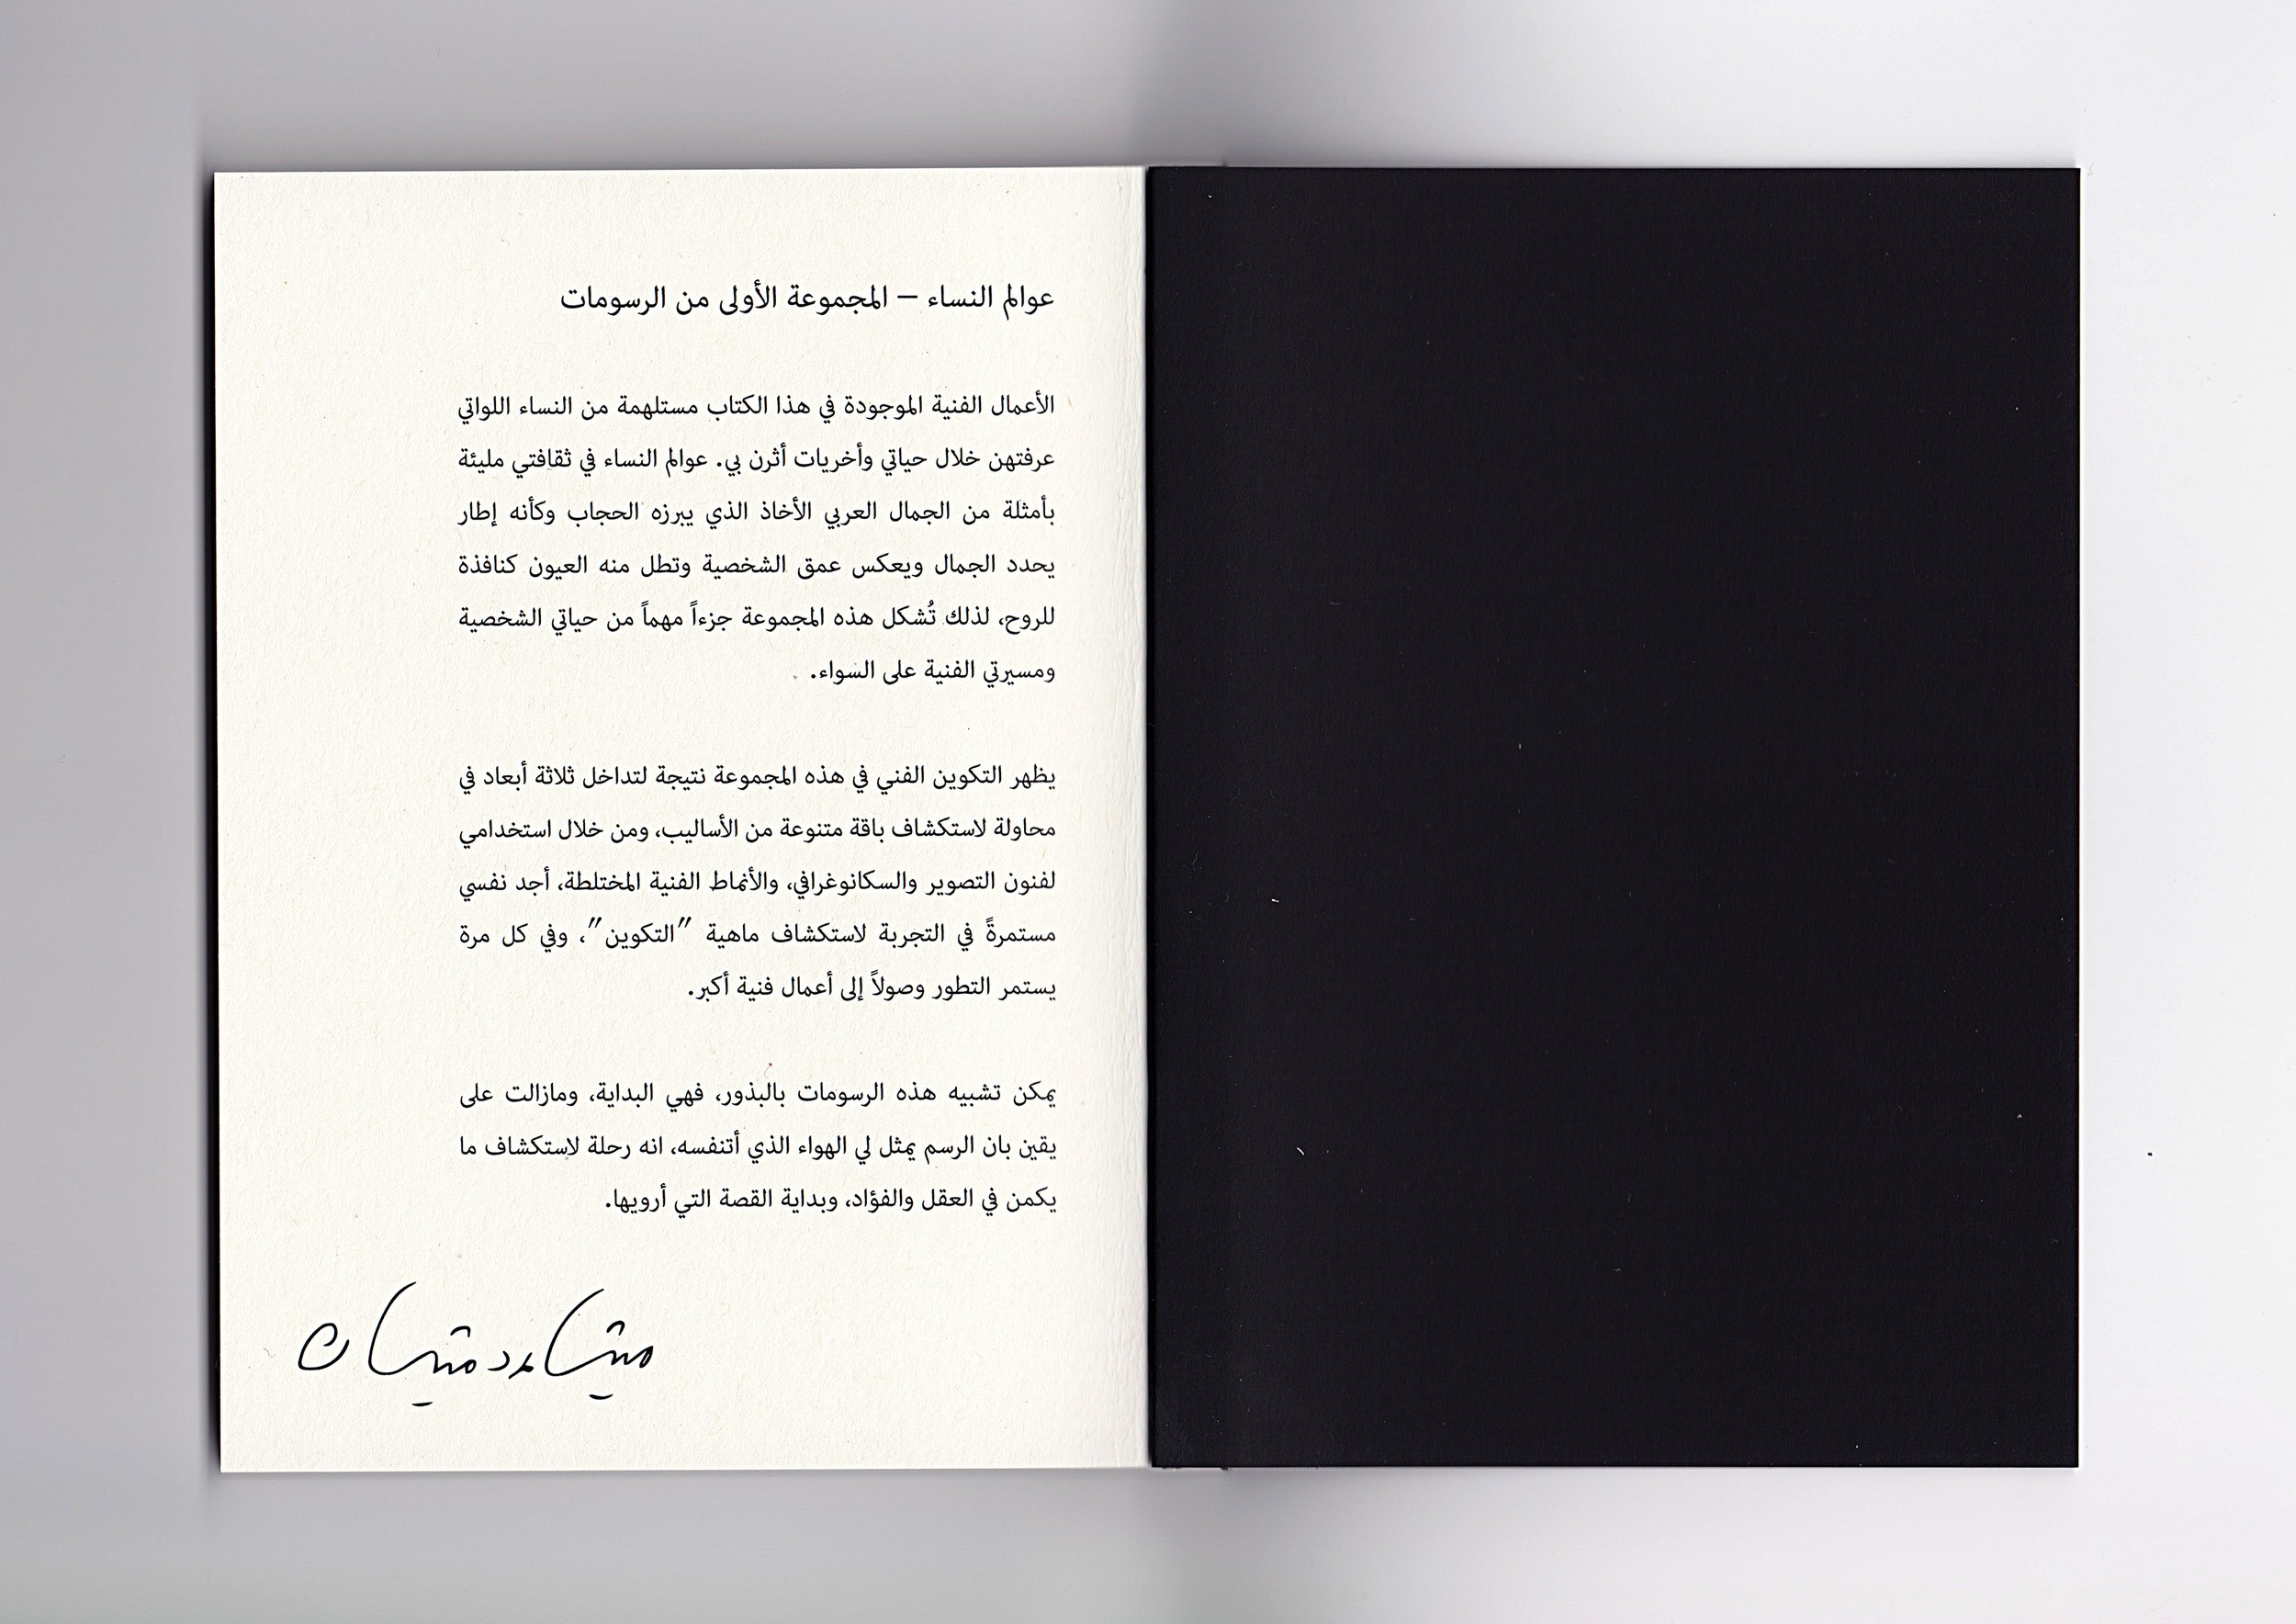 عوالم النساء – المجموعة الأولى من الرسومات
الأعمال الفنية الموجودة في هذا الكتاب مستلهمة من النساء اللواتي
عرفتهن خلال حياتي وأخريات أثرن بي. عوالم النساء في ثقافتي مليئة
بأمثلة من الجمال العربي الأخاذ الذي يبرزه الحجاب وكأنه إطار
يحدد الجمال ويعكس عمق الشخصية وتطل منه العيون كنافذة
للروح، لذلك تُشكل هذه المجموعة جزءاً مهماً من حياتي الشخصية
ومسيرتي الفنية على السواء.
يظهر التكوين الفني في هذه المجموعة نتيجة لتداخل ثلاثة أبعاد في
محاولة لاستكشاف باقة متنوعة من الأساليب، ومن خلال استخدامي
لفنون التصوير والسكانوغرافي، والأنماط الفنية المختلطة، أجد نفسي
مستمرةً في التجربة لاستكشاف ماهية "التكوين"، وفي كل مرة
يستمر التطور وصولاً إلى أعمال فنية أكبر.
يمكن تشبيه هذه الرسومات بالبذور، فهي البداية، ومازالت على
يقين بان الرسم يمثل لي الهواء الذي أتنفسه، انه رحلة لاستكشاف ما
يكمن في العقل والفؤاد، وبداية القصة التي أرويها.